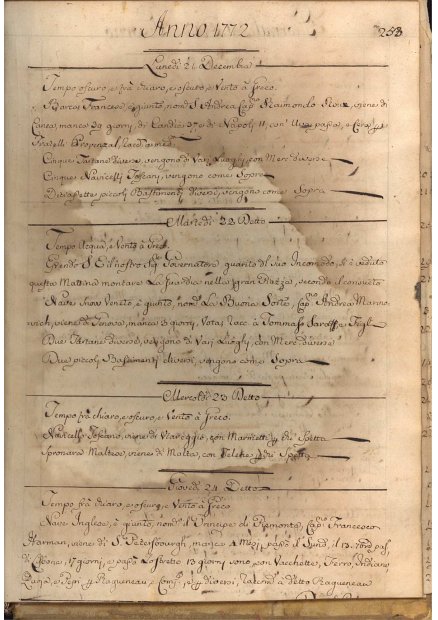 Anno 1772
253
Lunedì 21 Decembre
Tempo oscuro, e frà chiaro, e oscuro, e Vento à Greco.
Barca Francese, è giunto, nom. S. Andrea Cap. Raimondo Roux, viene di
Canea, manca 39 giorni, di Candia 37 e di Napoli 11, con
Fratelli
Cinque Tartane diverse, vengono di Vari Luoghi, con Merc. diverse
Cinque Navicelli Toscani, vengono come Sopra
piccoli Bastimenti diversi, vengono come Sopra
Martedì 22 Detto
Tempo Acqua, e Vento à Greco.
Essendo S. E. il nostro Sig. Governatore guarito dal Suo Incomodo, si è veduta
questa Mattina montare La Guardia nella gran Piazza, secondo il consueto
Nave Snow Veneto, è giunto, nom. La Buona Sorte, Cap. Andrea Marino
vich, viene di Genova, manca 3 giorni, Vota, racc. à Tommaso
Due Tartane diverse, vengono di Vari Luoghi, con Merc. diverse
Due piccoli Bastimenti diversi, vengono come Sopra
Mercoldì 23 Detto
Tempo frà chiaro, e oscuro, e Vento à Greco.
Navicello Toscano, viene di Viareggio, con Marinari 4 di Spetta
Speronara Maltese, viene di Malta, con di Spetta
Giovedì 24 Detto
Tempo frà chiaro, e oscuro, e Vento à Greco
Nave Inglese, è giunto, nom. il Principe di Piemonte, Cap. Francesco
Harman, viene di S. Petersbourgh, manca 4 Mesi, il Sund, il 13.
17 giorni, e lo stretto 13 giorni sono, con Vacchette, Ferro, Indiano,
e Pepi, à Ragueneau e Comp. e à diversi, à detto Ragueneau